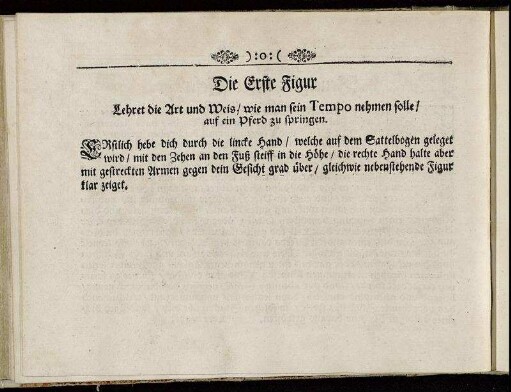 ):o:(
Die Erste Figur
Lehret die Art und Weis/ wie man sein Tempo nehmen solle/
auf ein Pferd zu springen.
ERstlich hebe dich durch die lincke Hand/ welche auf dem Sattelbogen geleget
wird/ mit den Zehen an den Fuß steiff in die Höhe/ die rechte Hand halte aber
mit gestreckten Armen gegen dein Gesicht grad über/ gleichwie nebenstehende Figur
klar zeiget.